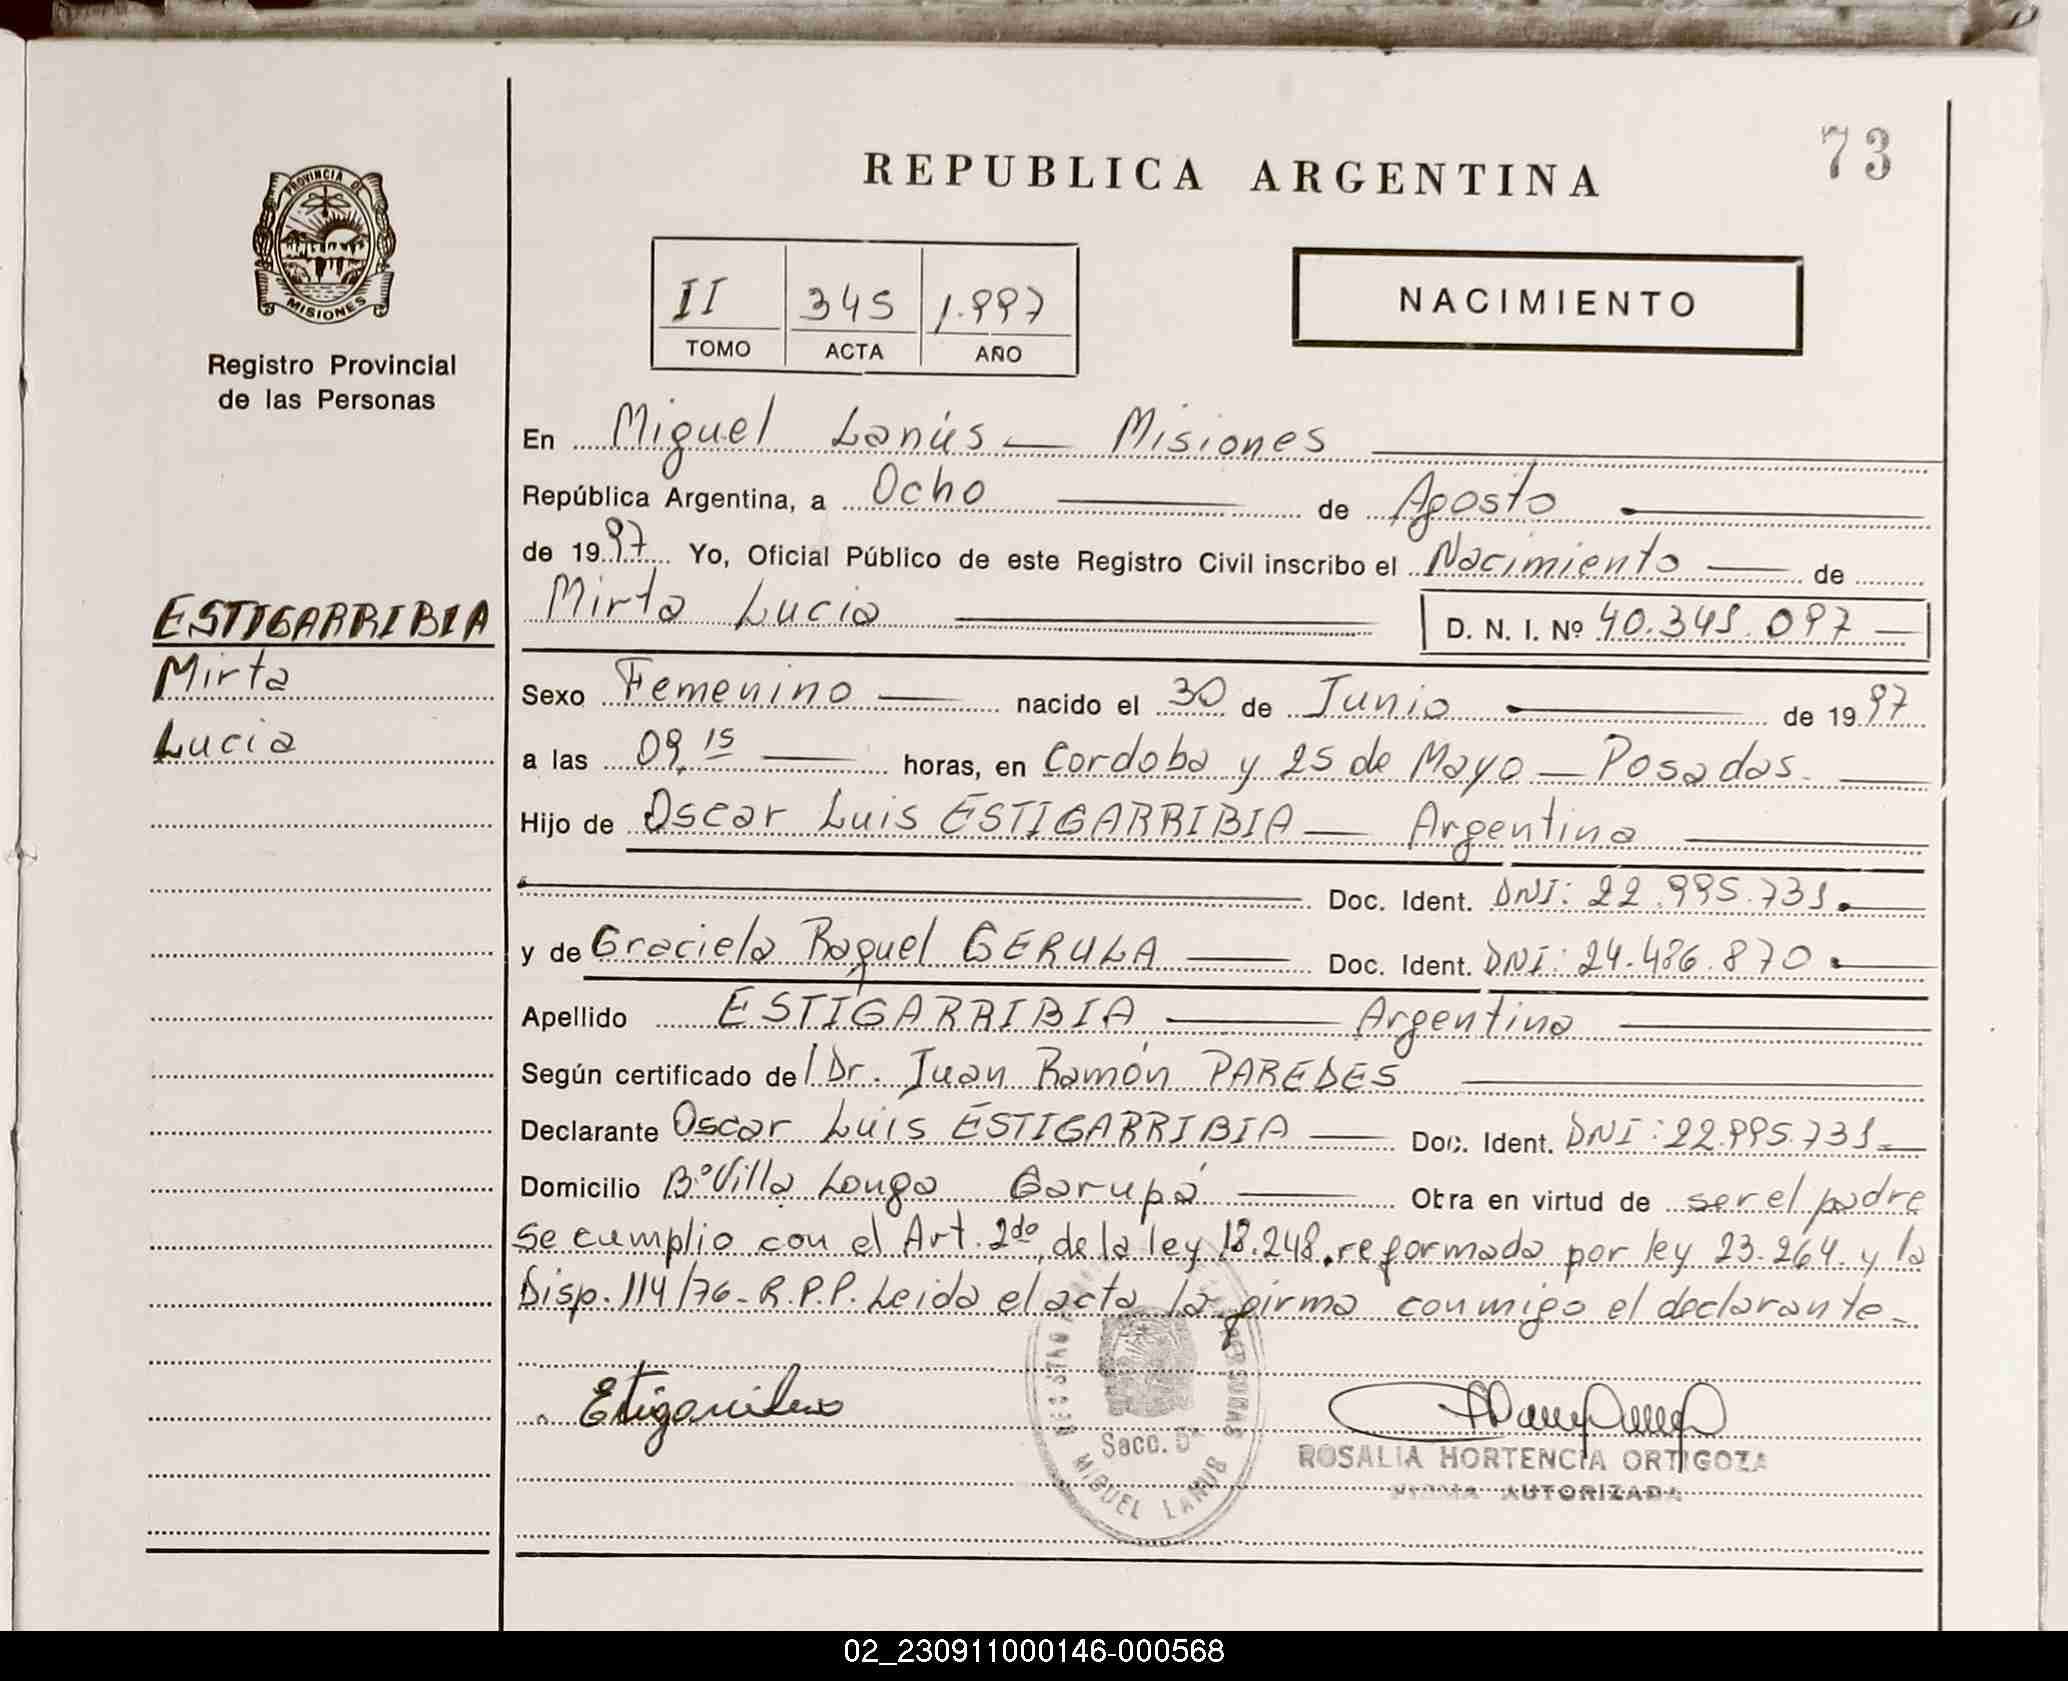 73
REPUBLICA ARGENTINA
PROVINCIA DE
MISIONES
Registro Provincial
de las Personas
II 345 1.997
TOMO ACTA AÑO
NACIMIENTO
En Miguel Lanús — Misiones
República Argentina, a Ocho de Agosto
de 1997 Yo, Oficial Público de este Registro Civil inscribo el Nacimiento — de
ESTIGARRIBIA
Mirta
Lucia
Mirta Lucia D. N. I. Nº 40.341.097 —
Sexo Femenino — nacido el 30 de Junio de 1997
a las 09,15 — horas, en Cordoba y 25 de Mayo — Posadas.
Hijo de Oscar Luis ESTIGARRIBIA — Argentina
Doc. Ident. DNI: 22.995.731.
y de Graciela Raquel GERULA — Doc. Ident. DNI: 24.486.870.
Apellido ESTIGARRIBIA — Argentina
Según certificado del Dr. Juan Ramón PAREDES
Declarante Oscar Luis ESTIGARRIBIA — Doc. Ident. DNI: 22.995.731.
Domicilio Bº Villa Longa Garupá — Obra en virtud de ser el padre
se cumplio con el Art. 2do. de la ley 18.248, reformada por ley 23.264. y la
Disp. 114/76- R.P.P. Leida el acta la firma conmigo el declarante-
Secc. 5ª
MIGUEL LANUS
ROSALIA HORTENCIA ORTIGOZA
FIRMA AUTORIZADA
02_230911000146-000568